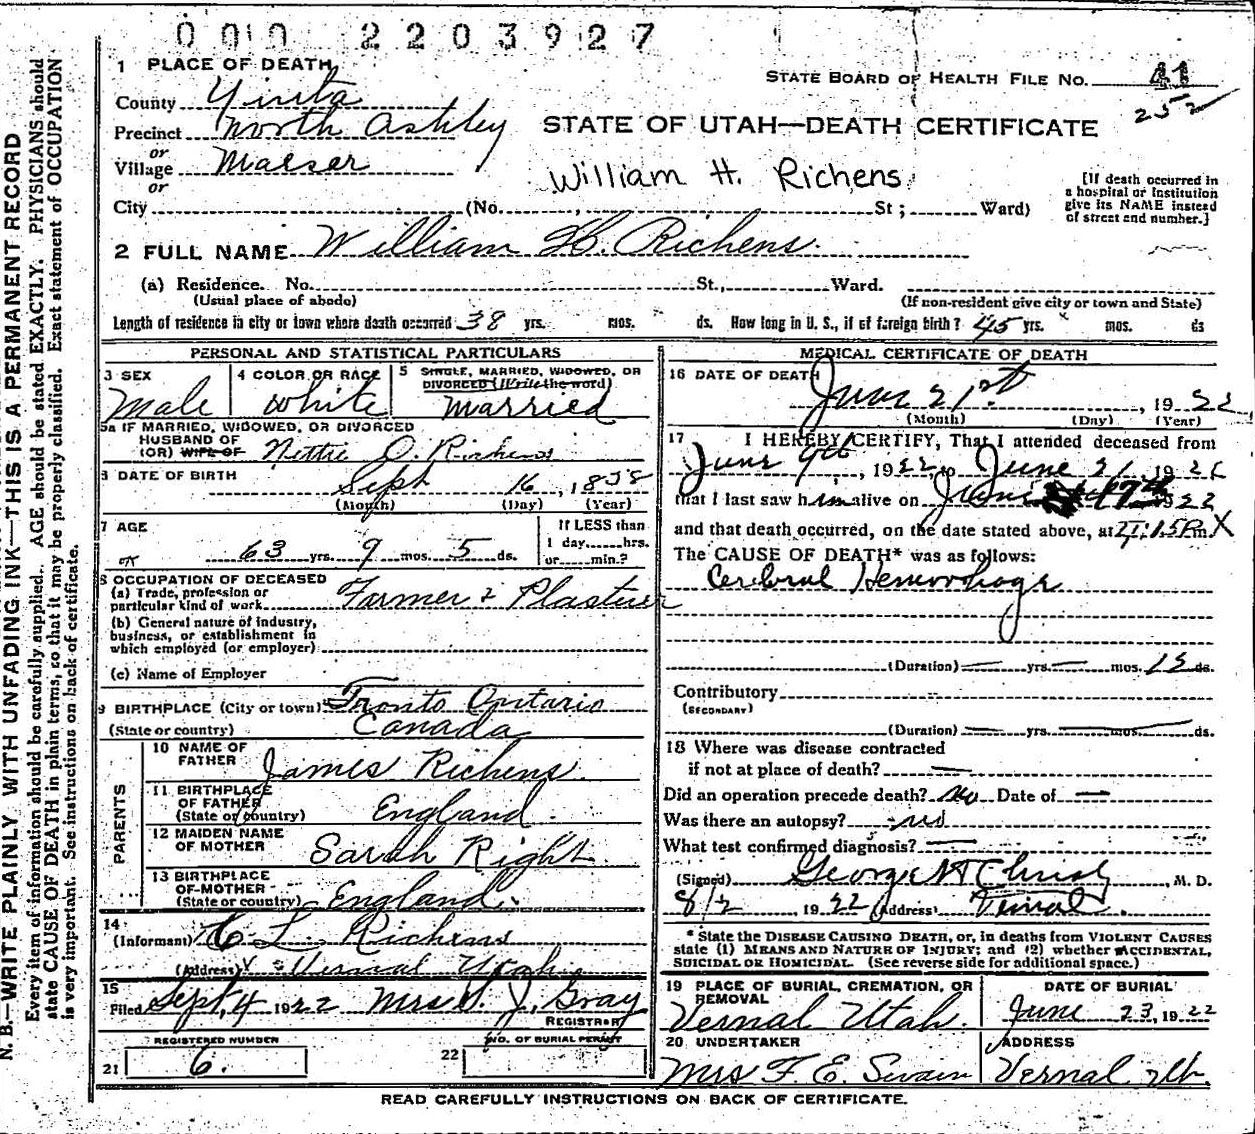 0 0 0 2 2 0 3 9 2 7
1 PLACE OF DEATH
STATE BOARD OF HEALTH FILE NO. 41
252
County Yinta
Precinct North Ashley
or
Village Maeser
or
STATE OF UTAH—DEATH CERTIFICATE
William H. Richens
[If death occurred in a hospital or institution give its NAME instead of street and number.]
City (No. , St ; Ward)
2 FULL NAME William H. Richens.
(a) Residence. No. St., Ward.
(Usual place of abode) (If non-resident give city or town and State)
Length of residence in city or town where death occurred 38 yrs. mos. ds. How long in U. S., if of foreign birth? 45 yrs. mos. ds
PERSONAL AND STATISTICAL PARTICULARS
3 SEX
Male
4 COLOR OR RACE
White
5 SINGLE, MARRIED, WIDOWED, OR
DIVORCED (Write the word)
Married
5a IF MARRIED, WIDOWED, OR DIVORCED
HUSBAND OF
(OR) WIFE OF Nettie O. Richens
6 DATE OF BIRTH Sept 16, 1858
(Month) (Day) (Year)
7 AGE
63 yrs. 9 mos. 5 ds.
If LESS than
1 day hrs.
or min.?
8 OCCUPATION OF DECEASED
(a) Trade, profession or
particular kind of work Farmer & Plasturer
(b) General nature of industry,
business, or establishment in
which employed (or employer)
(c) Name of Employer
9 BIRTHPLACE (City or town) Tronto Ontario
(State or country) Canada
PARENTS
10 NAME OF
FATHER James Richens
11 BIRTHPLACE
OF FATHER
(State or country) England.
12 MAIDEN NAME
OF MOTHER Sarah Right
13 BIRTHPLACE
OF MOTHER
(State or country) England.
14
(Informant) C. L. Richens
(Address) Vernal Utah
15
Filed Sept, 4 1922 Mrs. J. Gray
REGISTRAR
REGISTERED NUMBER
21 6.
NO. OF BURIAL PERMIT
22
MEDICAL CERTIFICATE OF DEATH
16 DATE OF DEATH
June 21st, 1922
(Month) (Day) (Year)
17 I HEREBY CERTIFY, That I attended deceased from
June 9th, 1922 to June 21 1922
that I last saw him alive on June 19th 1922
and that death occurred, on the date stated above, at m X
The CAUSE OF DEATH* was as follows:
Cerebral Hemorrhage
(Duration) — yrs. — mos. 15 ds.
Contributory
(SECONDARY)
(Duration) — yrs. — mos. — ds.
18 Where was disease contracted
if not at place of death? —
Did an operation precede death? No Date of —
Was there an autopsy? no
What test confirmed diagnosis? —
(Signed) George H Christy, M. D.
8/2 1922 (Address) Vernal.
* State the DISEASE CAUSING DEATH, or, in deaths from VIOLENT CAUSES
state (1) MEANS AND NATURE OF INJURY; and (2) whether ACCIDENTAL,
SUICIDAL OR HOMICIDAL. (See reverse side for additional space.)
19 PLACE OF BURIAL, CREMATION, OR
REMOVAL
Vernal Utah.
DATE OF BURIAL
June 23, 1922
20 UNDERTAKER
Mrs F. E. Swain
ADDRESS
Vernal Ut.
READ CAREFULLY INSTRUCTIONS ON BACK OF CERTIFICATE.
N. B.—WRITE PLAINLY WITH UNFADING INK—THIS IS A PERMANENT RECORD
Every item of information should be carefully supplied. AGE should be stated EXACTLY. PHYSICIANS should
state CAUSE OF DEATH in plain terms, so that it may be properly classified. Exact statement of OCCUPATION
is very important. See instructions on back of certificate.